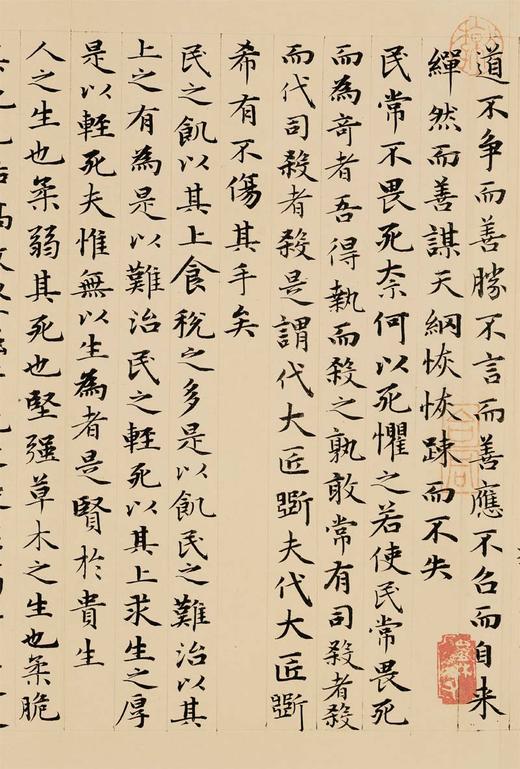 道不争而善勝不言而善應不召而自来
繟然而善謀天網恢恢踈而不失
民常不畏死柰何以死懼之若使民常畏死
而為竒者吾得執而殺之孰敢常有司殺者殺
而代司殺者殺是謂代大匠斲夫代大匠斲
希有不傷其手矣
民之飢以其上食稅之多是以飢民之難治以其
上之有為是以難治民之輕死以其上求生之厚
是以輕死夫惟無以生為者是賢於貴生
人之生也柔弱其死也堅强草木之生也柔脆